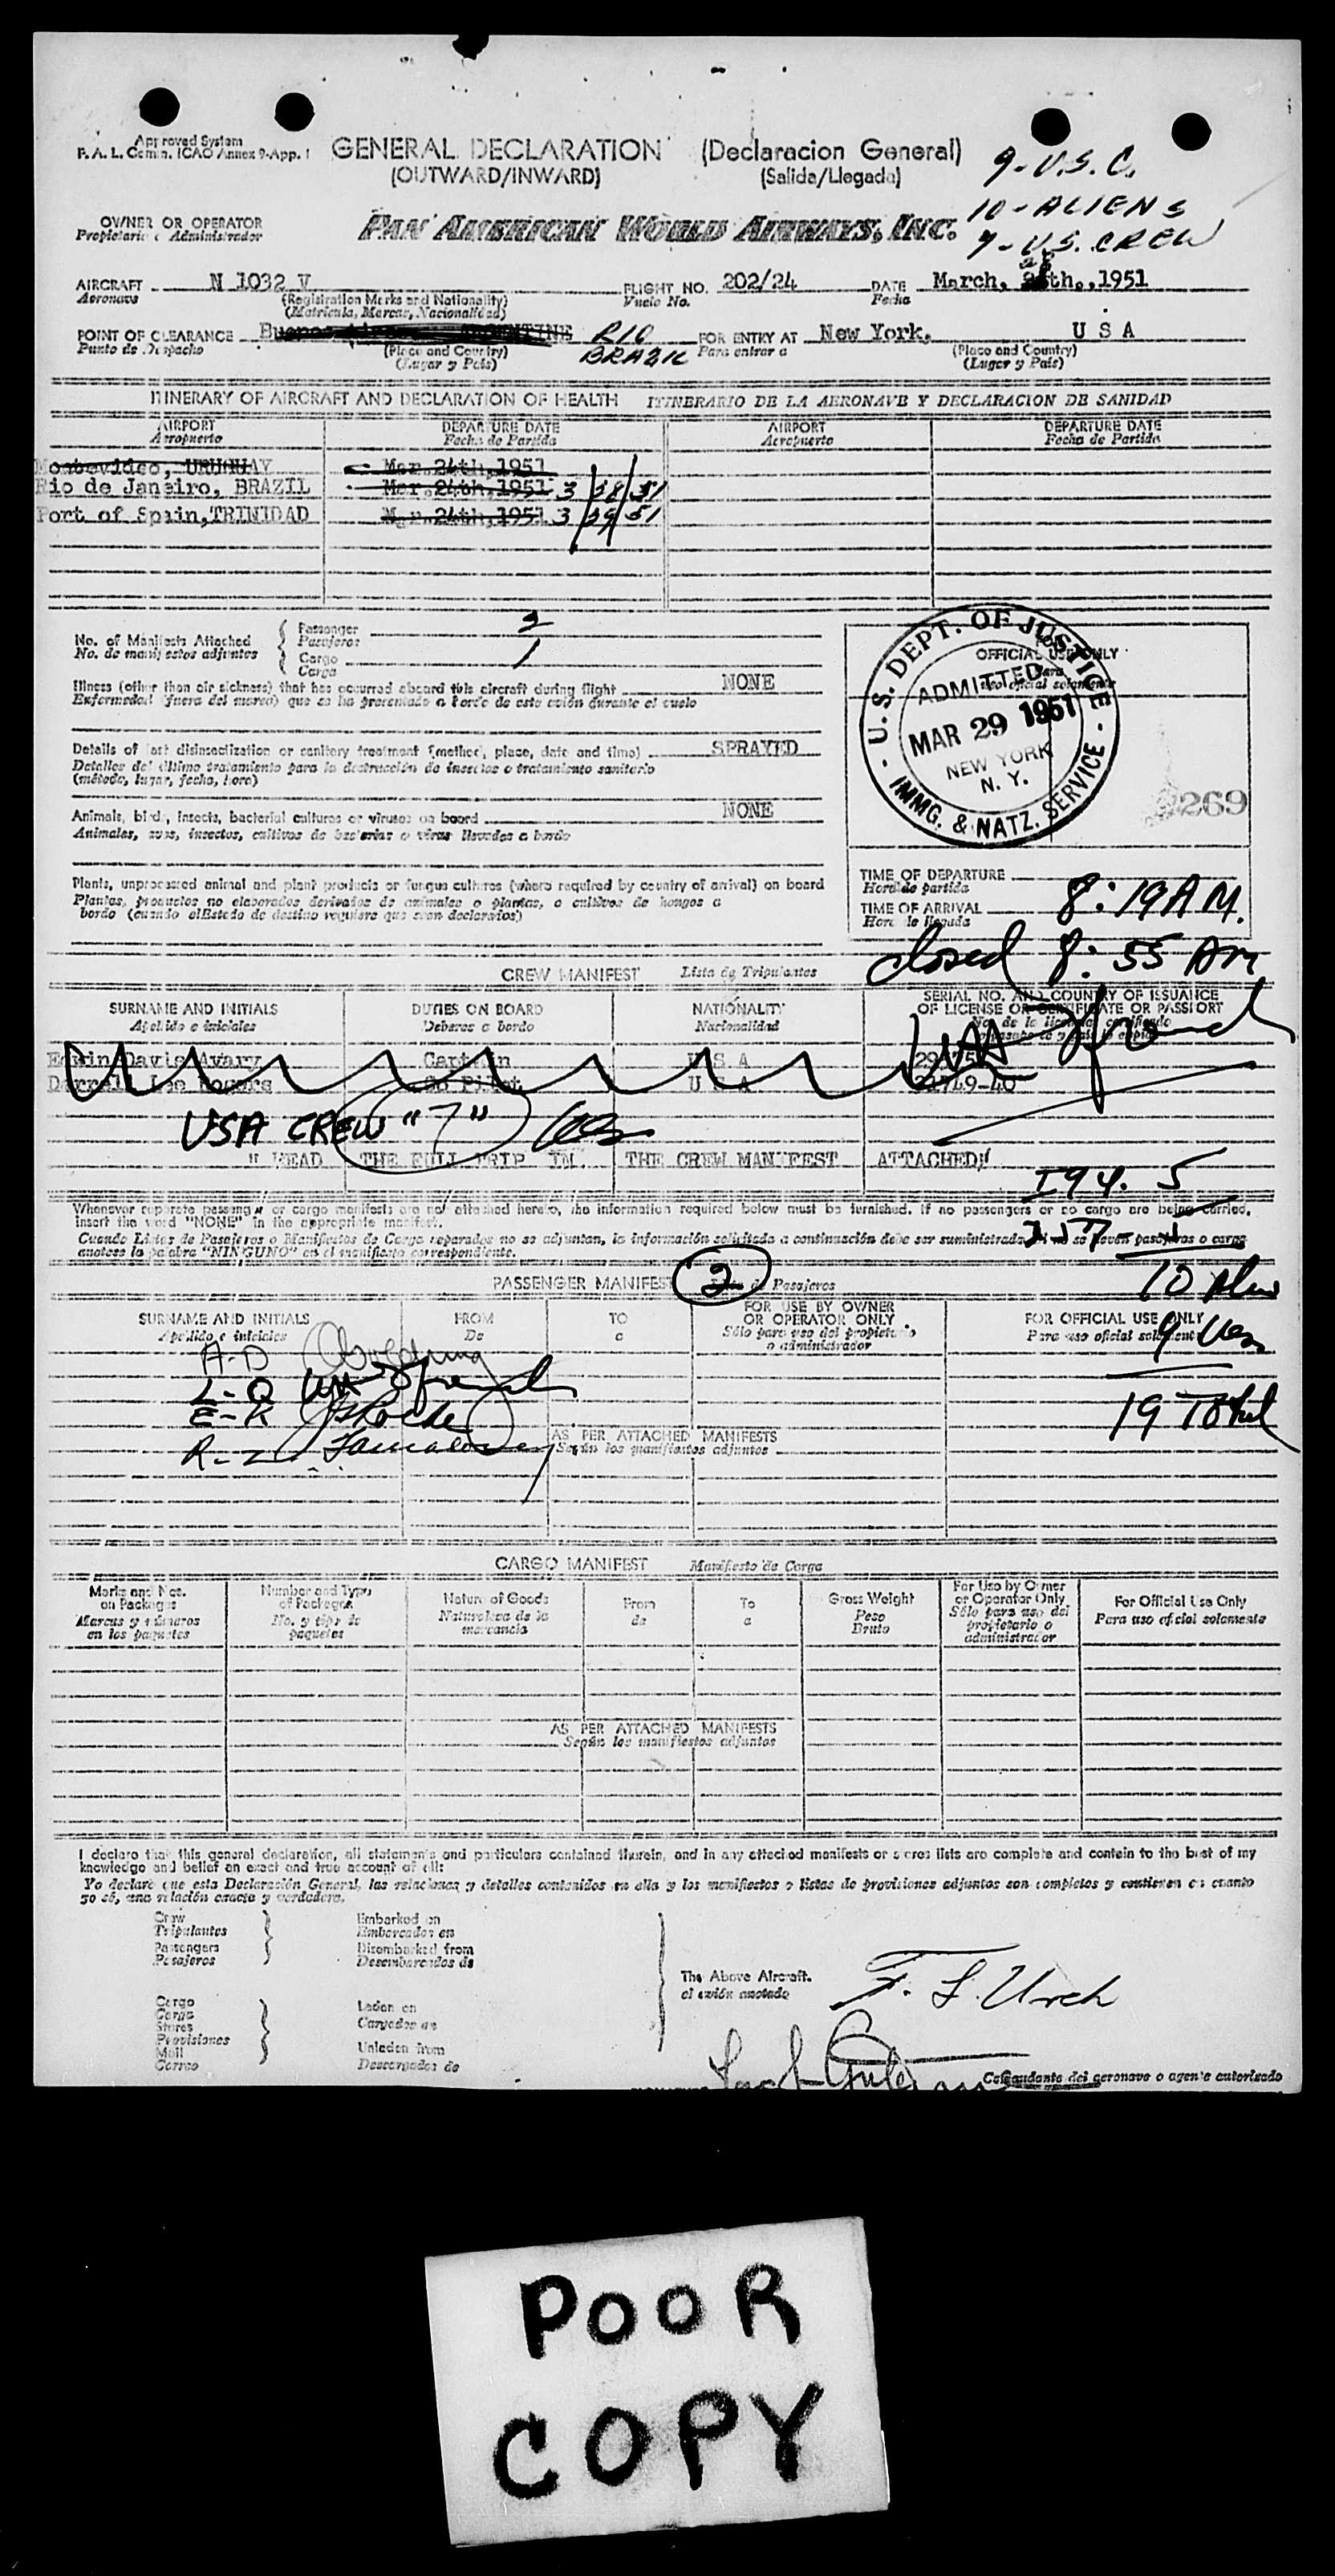 Approved System
F. A. L. Comm. ICAO Annex 9-App. 1
GENERAL DECLARATION (Declaracion General)
(OUTWARD/INWARD) (Salida/Llegada)
9-U.S.C.
10-ALIENS
7-U.S. CREW
OWNER OR OPERATOR
Propietario o Administrador
PAN AMERICAN WORLD AIRWAYS, INC.
AIRCRAFT N 1032 V FLIGHT NO. 202/24 DATE March, th., 1951
Aeronave (Registration Marks and Nationality) Vuelo No. Fecha
(Matricula, Marcas, Nacionalidad)
POINT OF CLEARANCE Buenos ARGENTINE RIO BRAZIL FOR ENTRY AT New York, U S A
Punto de Despacho (Place and Country) Para entrar a (Place and Country)
(Lugar y Pais) (Lugar y Pais)
ITINERARY OF AIRCRAFT AND DECLARATION OF HEALTH ITINERARIO DE LA AERONAVE Y DECLARACION DE SANIDAD
AIRPORT DEPARTURE DATE AIRPORT DEPARTURE DATE
Aeropuerto Fecha de Partida Aeropuerto Fecha de Partida
Montevideo, URUGUAY Mar.24th,1951
Rio de Janeiro, BRAZIL Mar.24th,1951 3/28/51
Port of Spain,TRINIDAD Mar.24th,1951 3/29/51
No. of Manifests Attached
No. de manifiestos adjuntos
Passenger 2
Pasajeros
Cargo 1
Carga
Illness (other than air sickness) that has occurred aboard this aircraft during flight NONE
Enfermedad (fuera del mareo) que se ha presentado a bordo de este avión durante el vuelo
Details of last disinsectization or sanitary treatment (method, place, date and time) SPRAYED
Detalles del último tratamiento para la destrucción de insectos o tratamiento sanitario
(método, lugar, fecha, hora)
Animals, birds, insects, bacterial cultures or viruses on board NONE
Animales, aves, insectos, cultivos de bacterias o virus llevados a bordo
Plants, unprocessed animal and plant products or fungus cultures (where required by country of arrival) on board
Plantas, productos no elaborados derivados de animales o plantas, o cultivos de hongos a
bordo (cuando el Estado de destino requiere que sean declarados)
FOR
OFFICIAL USE ONLY
Para
uso oficial solamente
U.S. DEPT. OF JUSTICE
ADMITTED
MAR 29 1951
NEW YORK
N. Y.
IMMG. & NATZ. SERVICE
269
TIME OF DEPARTURE
Hora de partida
TIME OF ARRIVAL 8:19 AM.
Hora de llegada
closed 8:55 AM
CREW MANIFEST Lista de Tripulantes
SURNAME AND INITIALS DUTIES ON BOARD NATIONALITY SERIAL NO. AND COUNTRY OF ISSUANCE
OF LICENSE OR CERTIFICATE OR PASSPORT
Apellido e iniciales Deberes a bordo Nacionalidad
Edwin Davis Avary Captain U S A
Darrell Lee Rogers Co Pilot U S A
USA CREW "7"
" HEAD THE FULL TRIP IN THE CREW MANIFEST ATTACHED"
I94. 5
Whenever separate passenger or cargo manifests are not attached hereto, the information required below must be furnished. If no passengers or no cargo are being carried,
insert the word "NONE" in the appropriate manifest.
Cuando Listas de Pasajeros o Manifiestos de Carga separados no se adjuntan, la información solicitada a continuación debe ser suministrada. Si no se llevan pasajeros o carga
anotese la palabra "NINGUNO" en el manifiesto correspondiente.
PASSENGER MANIFEST 2 de Pasajeros
10
SURNAME AND INITIALS FROM TO FOR USE BY OWNER
OR OPERATOR ONLY FOR OFFICIAL USE ONLY
Apellido e iniciales De a Sólo para uso del propietario
o administrador Para uso oficial solamente
9
A-D
L-Q
E-K
R-Z
19 Total
AS PER ATTACHED MANIFESTS
Según los manifiestos adjuntos
CARGO MANIFEST Manifiesto de Carga
Marks and Nos.
on Packages Number and Type
of Packages Nature of Goods From To Gross Weight For Use by Owner
or Operator Only For Official Use Only
Marcas y números
en los paquetes No. y tipo de
paquetes Naturaleza de la
mercancia de a Peso
Bruto Sólo para uso del
propietario o
administrador Para uso oficial solamente
AS PER ATTACHED MANIFESTS
Según los manifiestos adjuntos
I declare that this general declaration, all statements and particulars contained therein, and in any attached manifests or stores lists are complete and contain to the best of my
knowledge and belief an exact and true account of all:
Yo declaro que esta Declaración General, las relaciones y detalles contenidos en ella y los manifiestos o listas de provisiones adjuntos son completos y contienen en cuanto
yo sé, una relación exacta y verdadera.
Crew Embarked on
Tripulantes Embarcados en
Passengers Disembarked from
Pasajeros Desembarcados de
Cargo Laden on
Carga Cargados en
Stores
Provisiones
Mail Unladen from
Correo Descargados de
The Above Aircraft.
el avión anotado
F. L. Urch
Comandante del aeronave o agente autorizado
POOR
COPY